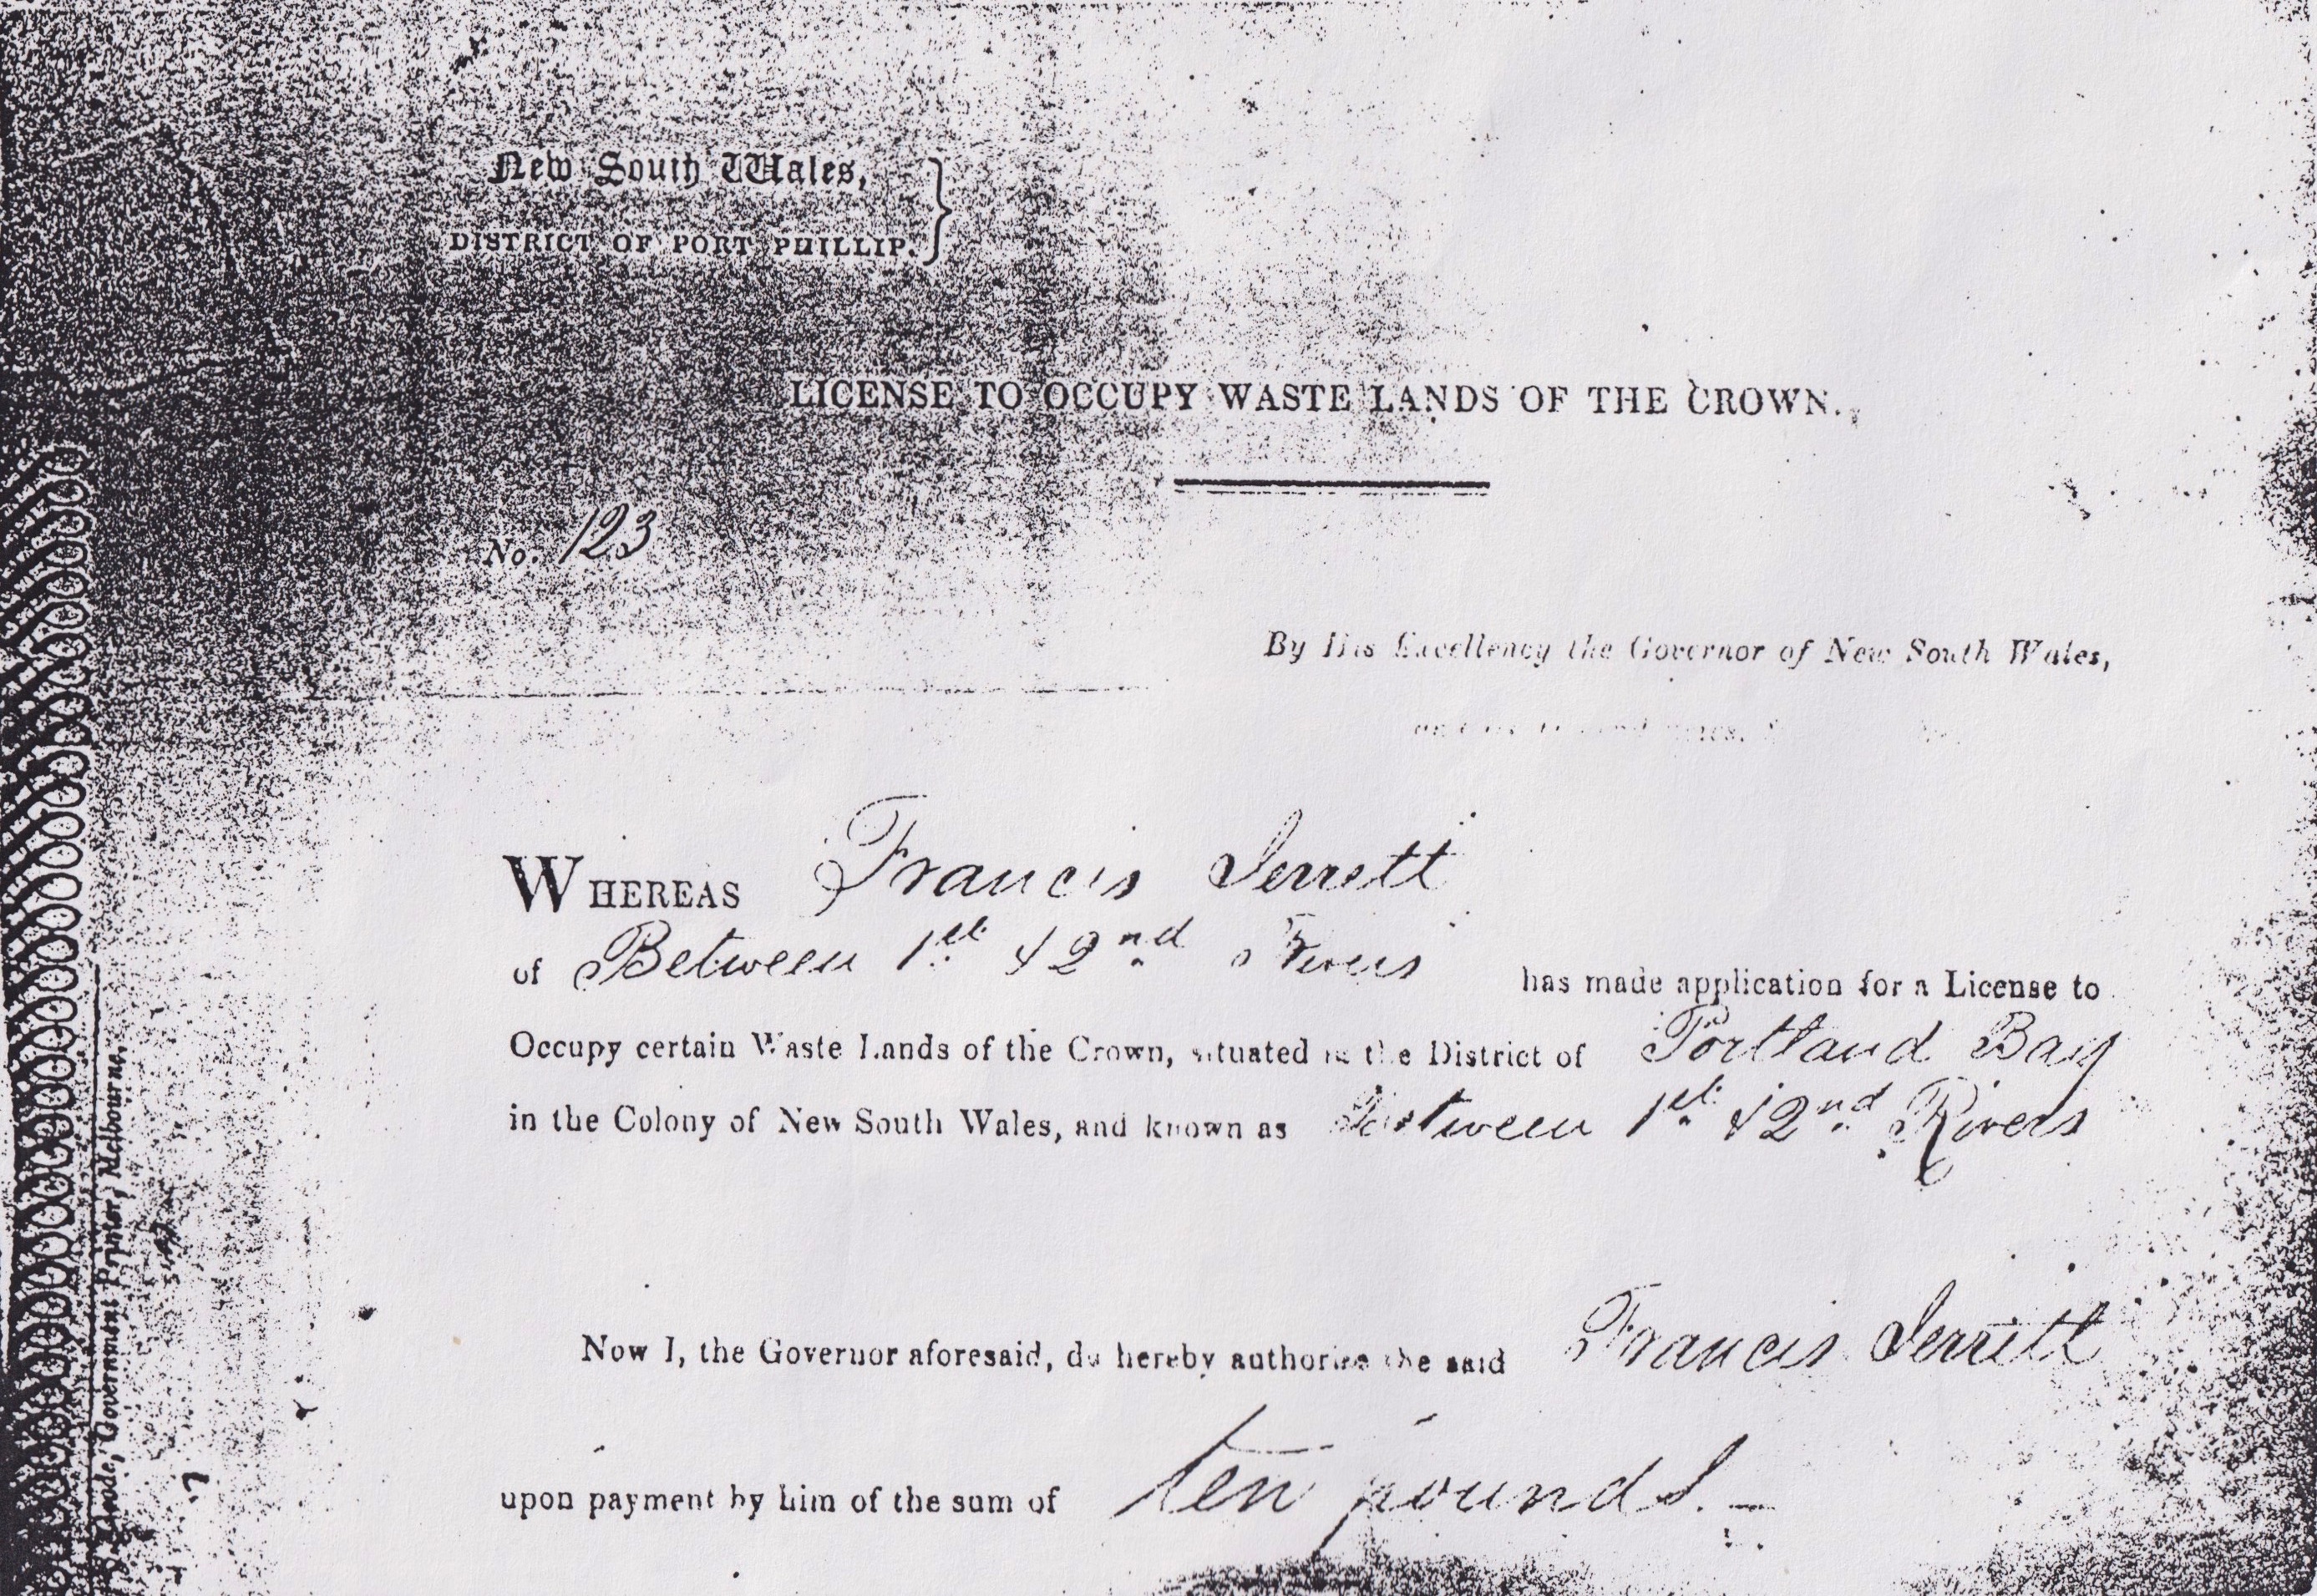 New South Wales,
DISTRICT OF PORT PHILLIP.
LICENSE TO OCCUPY WASTE LANDS OF THE CROWN.
No. 123
By His Excellency the Governor of New South Wales,
WHEREAS Francis Jerrett
of Between 1st & 2nd Rivers has made application for a License to
Occupy certain Waste Lands of the Crown, situated in the District of Portland Bay
in the Colony of New South Wales, and known as Between 1st & 2nd Rivers
Now I, the Governor aforesaid, do hereby authorise the said Francis Jerrett
upon payment by him of the sum of ten pounds.
Government Printer, Melbourne.